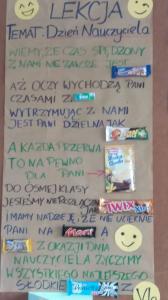 LEKCJA
TEMAT: Dzień Nauczyciela
WIEMY, ŻE CZAS SPĘDZONY
Z NAMI NIE ZAWSZE JEST
AŻ OCZY WYCHODZĄ PANI
CZASAMI Z
WYTRZYMUJĄC Z NAMI
JEST PANI DZIELNA JAK
A KAŻDA PRZERWA
TO NA PEWNO
DLA PANI
DO ÓSMEJ KLASY
JESTEŚMY NIEROZŁĄCZNI JAK
TWIX
I MAMY NADZIEJĘ, ŻE NIE UCIEKNIE
PANI NA
Mars
Z OKAZJI DNIA
NAUCZYCIELA ŻYCZYMY
WSZYSTKIEGO NAJLEPSZEGO
SŁODKIE